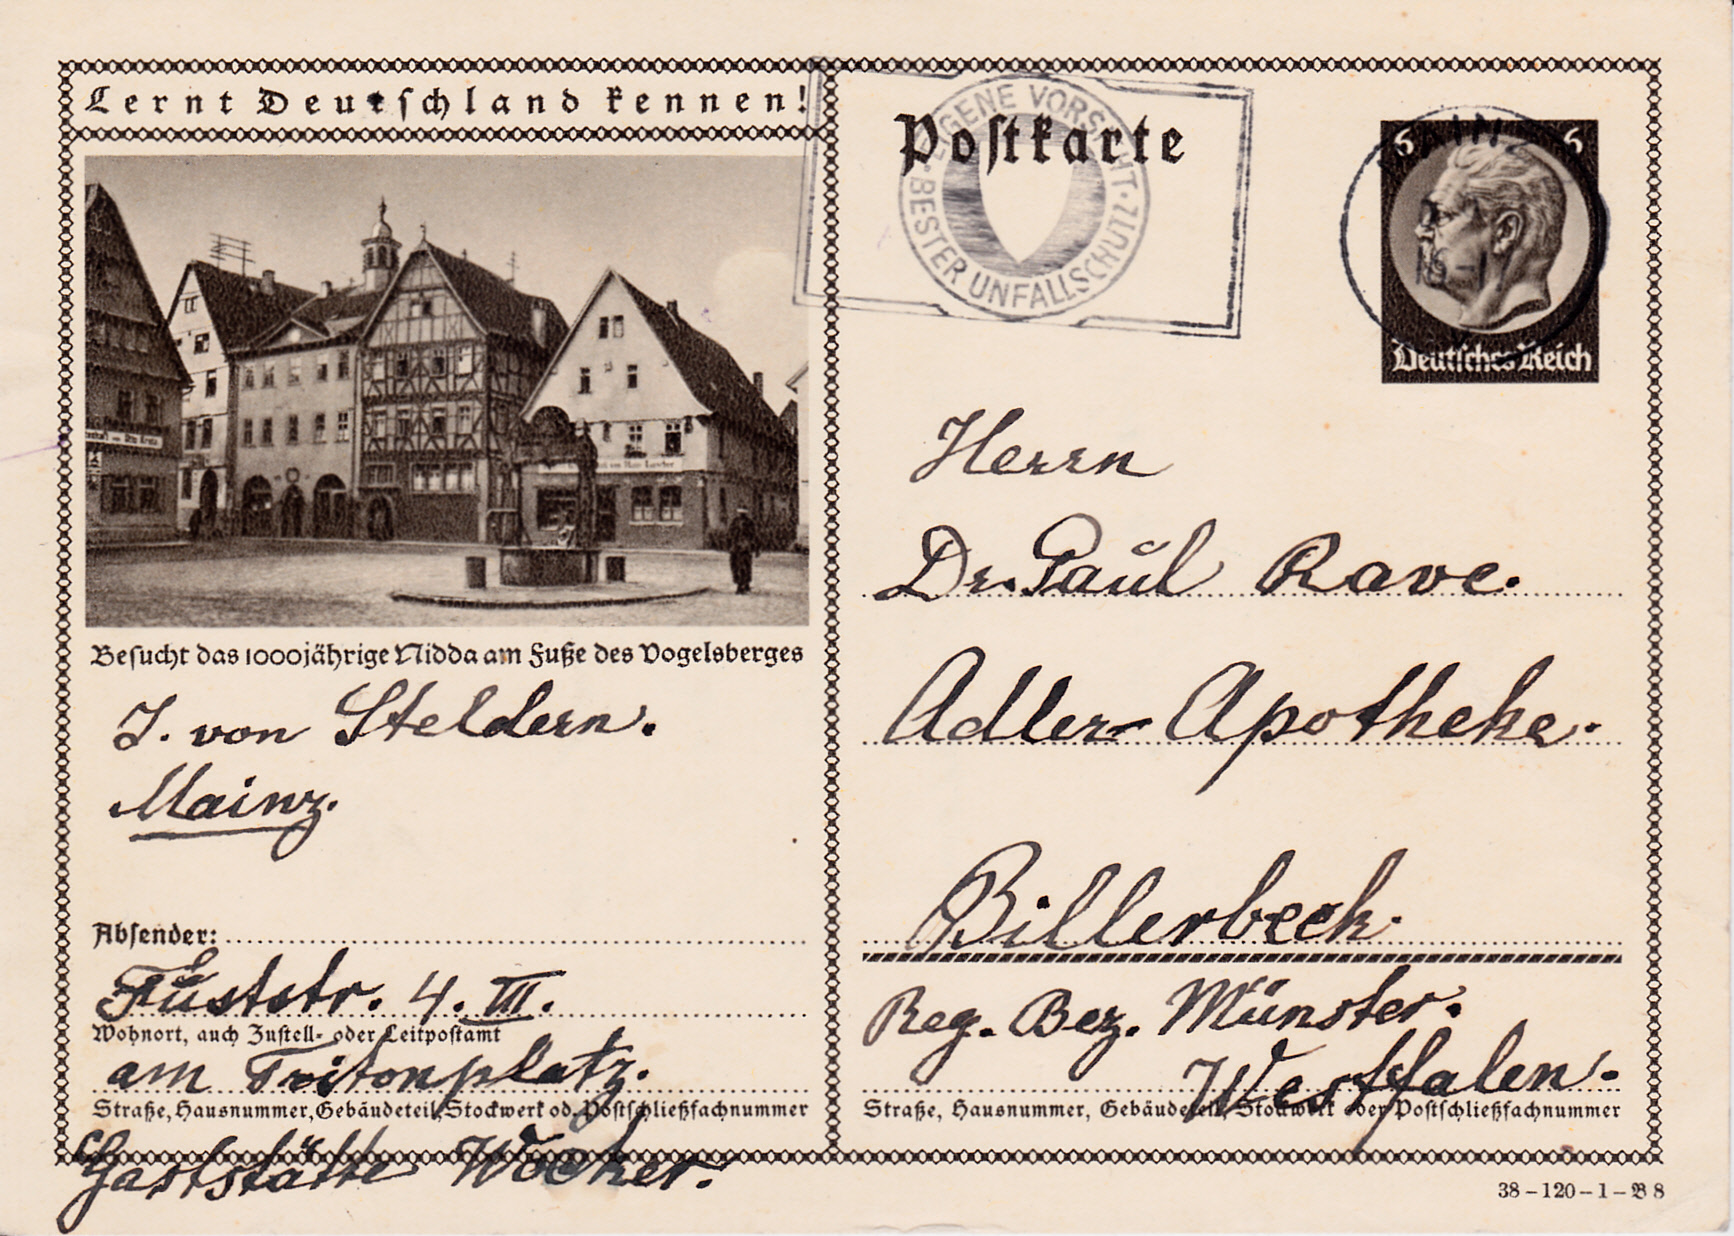 Lernt Deutschland kennen!
Besucht das 1000jährige Nidda am Fuße des Vogelsberges
J. von Steldern.
Mainz.
Absender:
Fuststr. 4. III.
Wohnort, auch Zustell- oder Leitpostamt
am Tritonplatz.
Straße, Hausnummer, Gebäudeteil, Stockwerk od. Postschließfachnummer
Gaststätte Wocker.
Postkarte
EIGENE VORSICHT · BESTER UNFALLSCHUTZ ·
6 6
Deutsches Reich
Herrn
Dr. Paul Rave.
Adler-Apotheke.
Billerbeck.
Reg. Bez. Münster.
Westfalen.
Straße, Hausnummer, Gebäudeteil, Stockwerk oder Postschließfachnummer
38–120–1–B 8